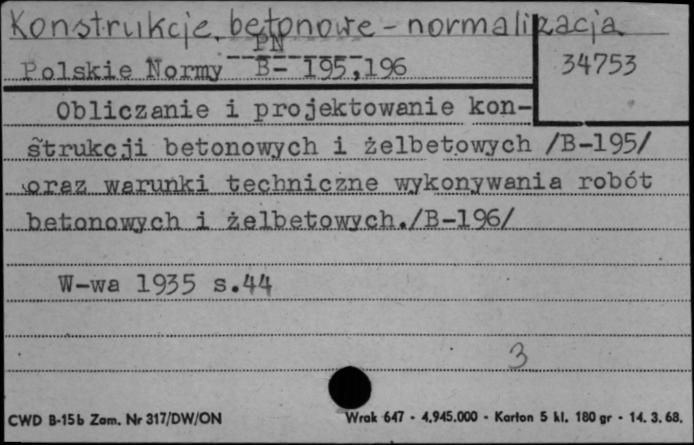 Konstrukcje betonowe - normalizacja
PN
Polskie Normy B- 195,196
34753
Obliczanie i projektowanie kon-
strukcji betonowych i żelbetowych /B-195/
oraz warunki techniczne wykonywania robót
betonowych i żelbetowych./B-196/
W-wa 1935 s.44
3
CWD B-15b Zam. Nr 317/DW/ON
Wrak 647 - 4.945.000 - Karton 5 kl. 180 gr - 14. 3. 68.